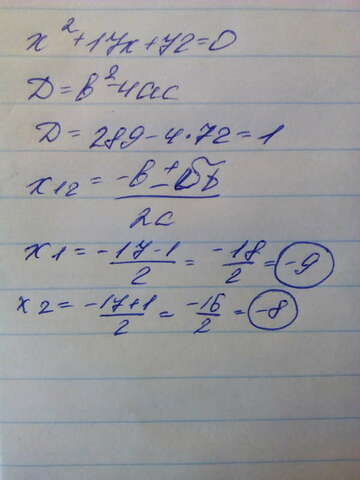 x²+17x+72=0
Д=в²-4ас
Д=289-4·72=1
x₁₂=(-в±√Д)/2а
x₁=(-17-1)/2=-18/2=-9
x₂=(-17+1)/2=-16/2=-8